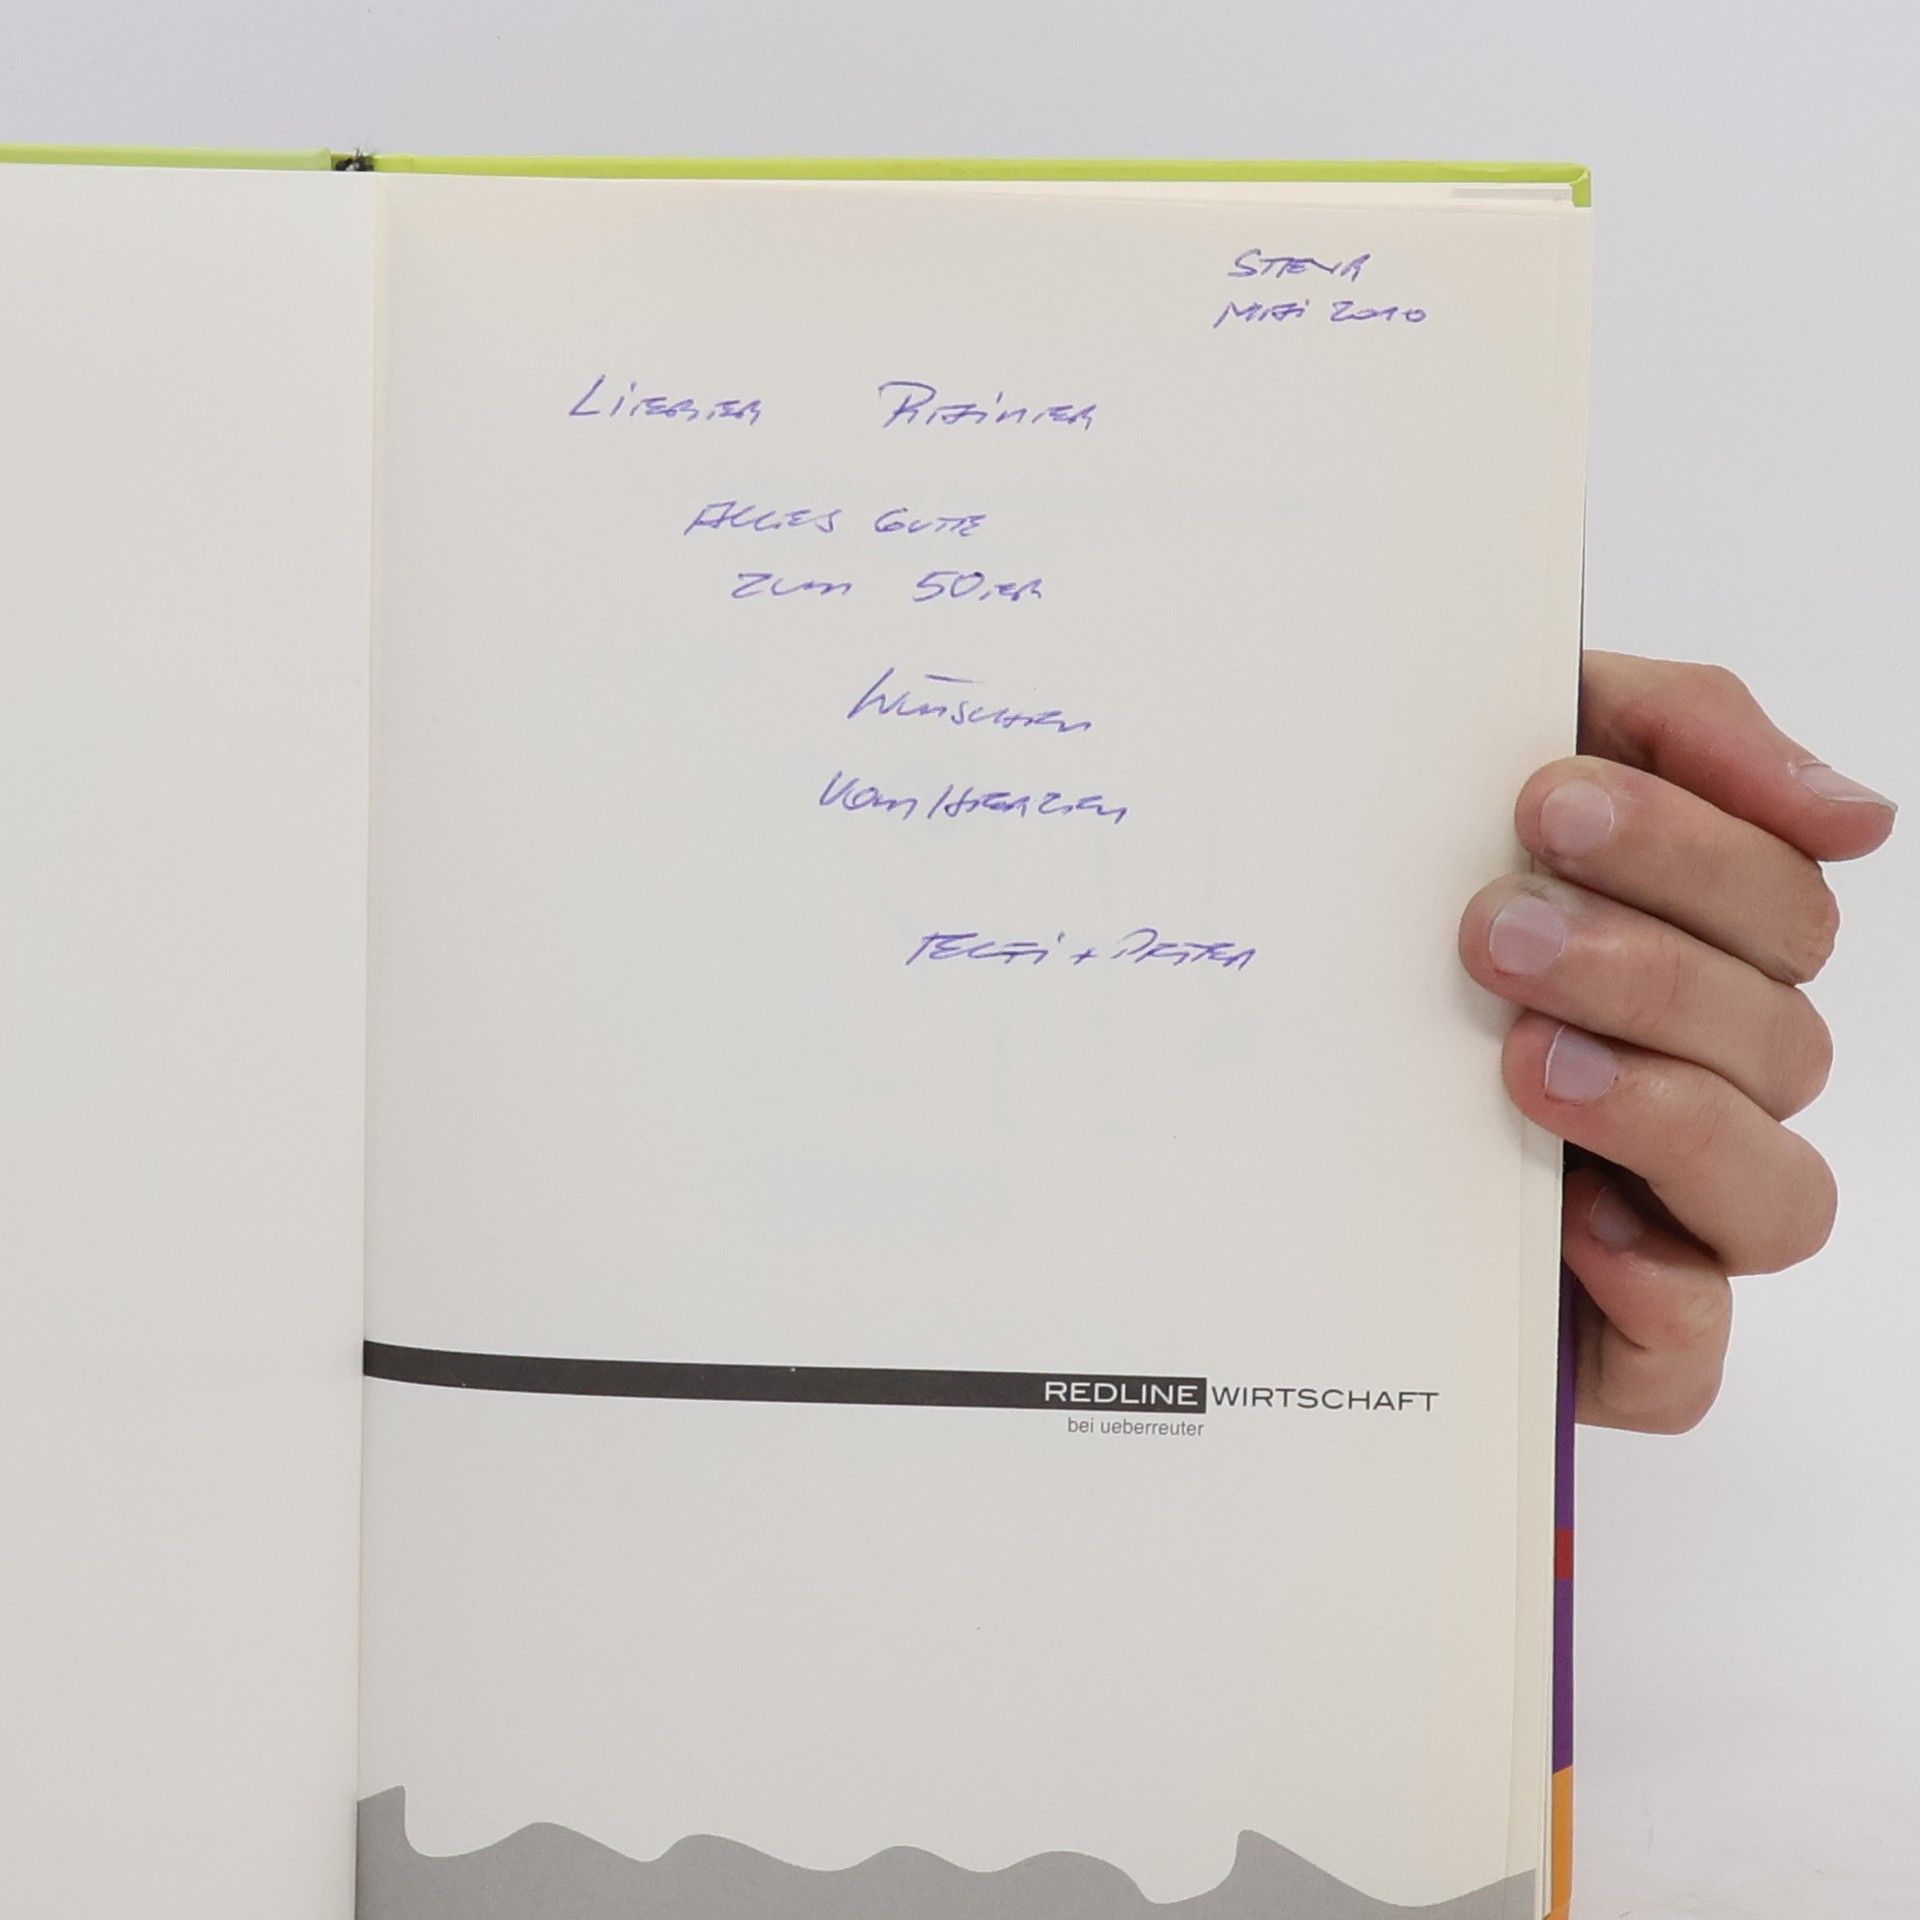 STEYR
MAI 2010
LIEBER RAINER
ALLES GUTE
ZUM 50ER
WÜNSCHEN
VOM HERZEN
FELIX + PETER
REDLINE WIRTSCHAFT
bei ueberreuter